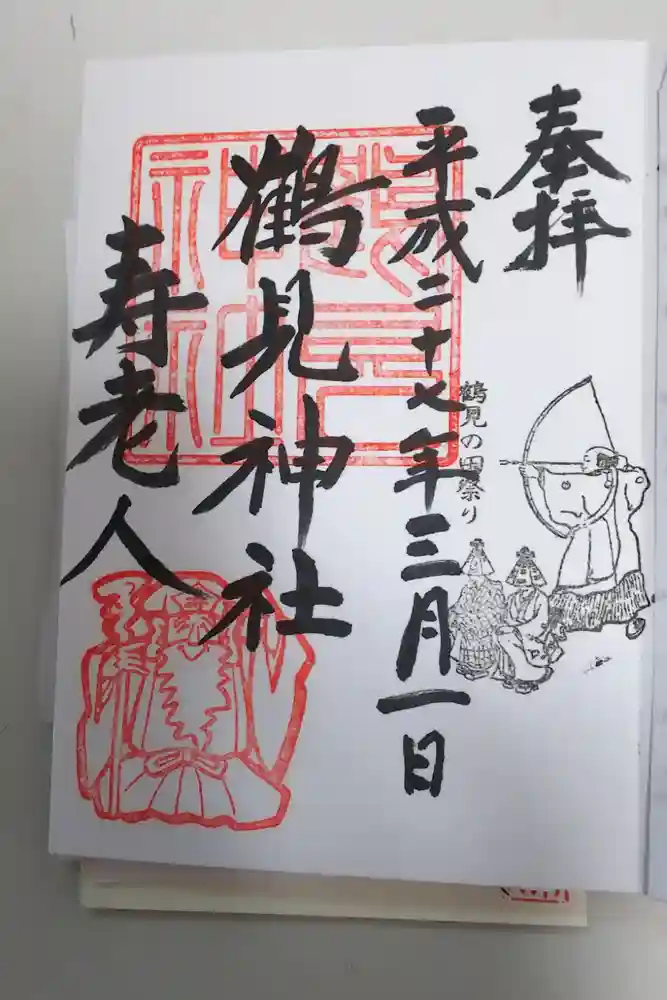 奉拝
平成二十七年三月一日
鶴見の田祭り
鶴見神社
寿老人
鶴見神社